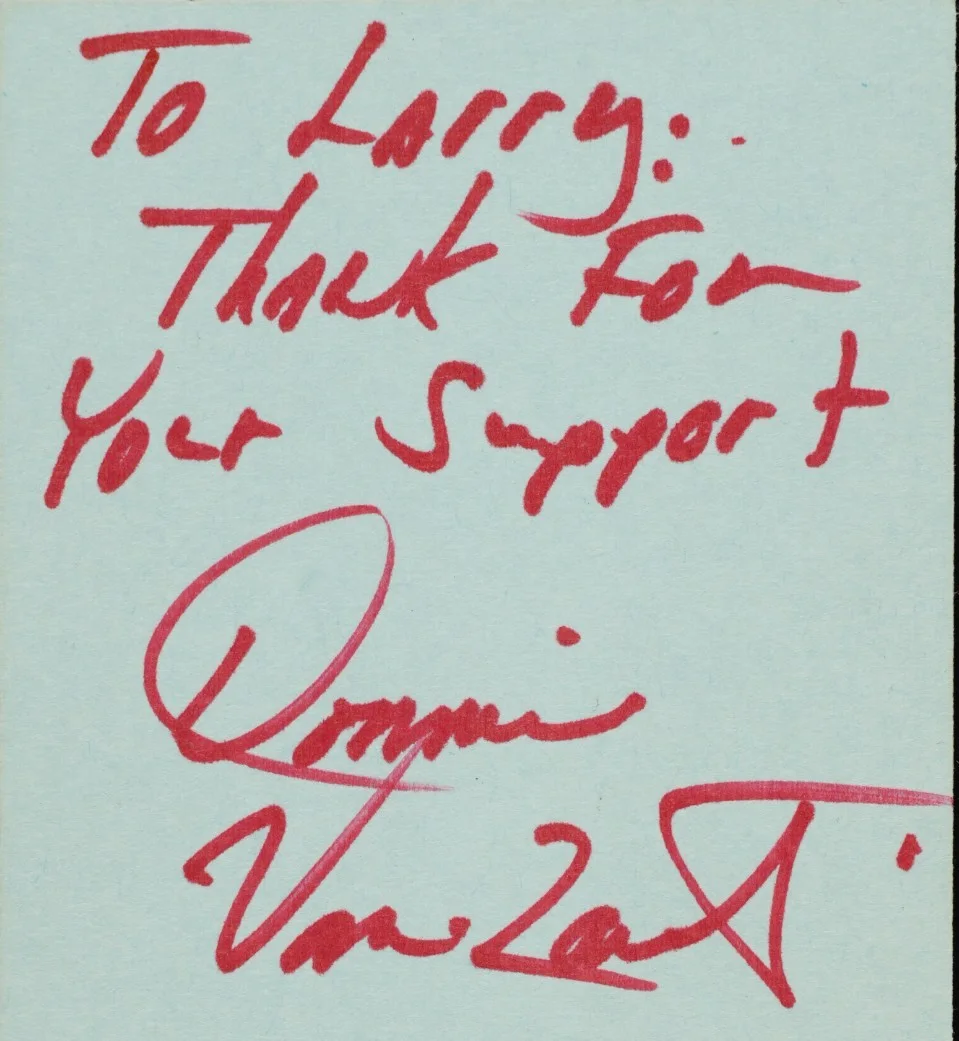 To Larry:
Thank For
Your Support
Donnie
Van Zant